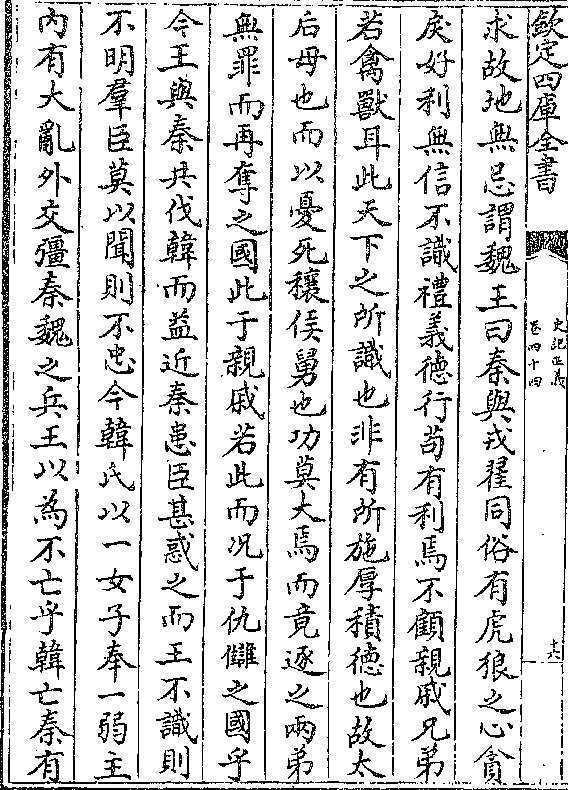 欽定四庫全書
史記正義
卷四十四
十六
求故地無忌謂魏王曰秦與戎翟同俗有虎狼之心貪
戾好利無信不識禮義德行苟有利焉不顧親戚兄弟
若禽獸耳此天下之所識也非有所施厚積德也故太
后母也而以憂死穰侯舅也功莫大焉而竟逐之兩弟
無罪而再奪之國此于親戚若此而况于仇讎之國乎
今王與秦共伐韓而益近秦患臣甚惑之而王不識則
不明羣臣莫以聞則不忠今韓氏以一女子奉一弱主
內有大亂外交彊秦魏之兵王以為不亡乎韓亡秦有